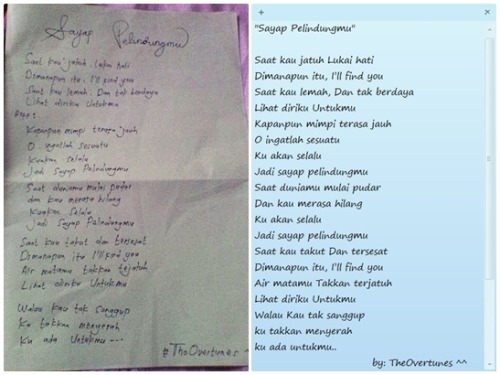 Sayap Pelindungmu
Saat kau jatuh Lukai hati
Dimanapun itu, I'll find you
Saat kau lemah, Dan tak berdaya
Lihat diriku Untukmu
Kapanpun mimpi terasa jauh
O ingatlah sesuatu
Kuakan selalu
Jadi Sayap Pelindungmu
Saat duniamu mulai pudar
dan kau merasa hilang
Kuakan Selalu
Jadi Sayap Pelindungmu
Saat kau takut dan tersesat
Dimanapun itu I'll find you
Air matamu takkan terjatuh
Lihat diriku Untukmu
Walau kau tak sanggup
Ku takkan menyerah
Ku ada Untukmu ---
#TheOvertunes ^^
"Sayap Pelindungmu"
Saat kau jatuh Lukai hati
Dimanapun itu, I'll find you
Saat kau lemah, Dan tak berdaya
Lihat diriku Untukmu
Kapanpun mimpi terasa jauh
O ingatlah sesuatu
Ku akan selalu
Jadi sayap pelindungmu
Saat duniamu mulai pudar
Dan kau merasa hilang
Ku akan selalu
Jadi sayap pelindungmu
Saat kau takut Dan tersesat
Dimanapun itu, I'll find you
Air matamu Takkan terjatuh
Lihat diriku Untukmu
Walau Kau tak sanggup
ku takkan menyerah
ku ada untukmu..
by: TheOvertunes ^^